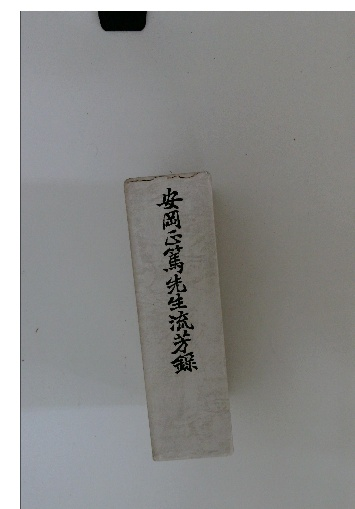 安岡正篤先生流芳録